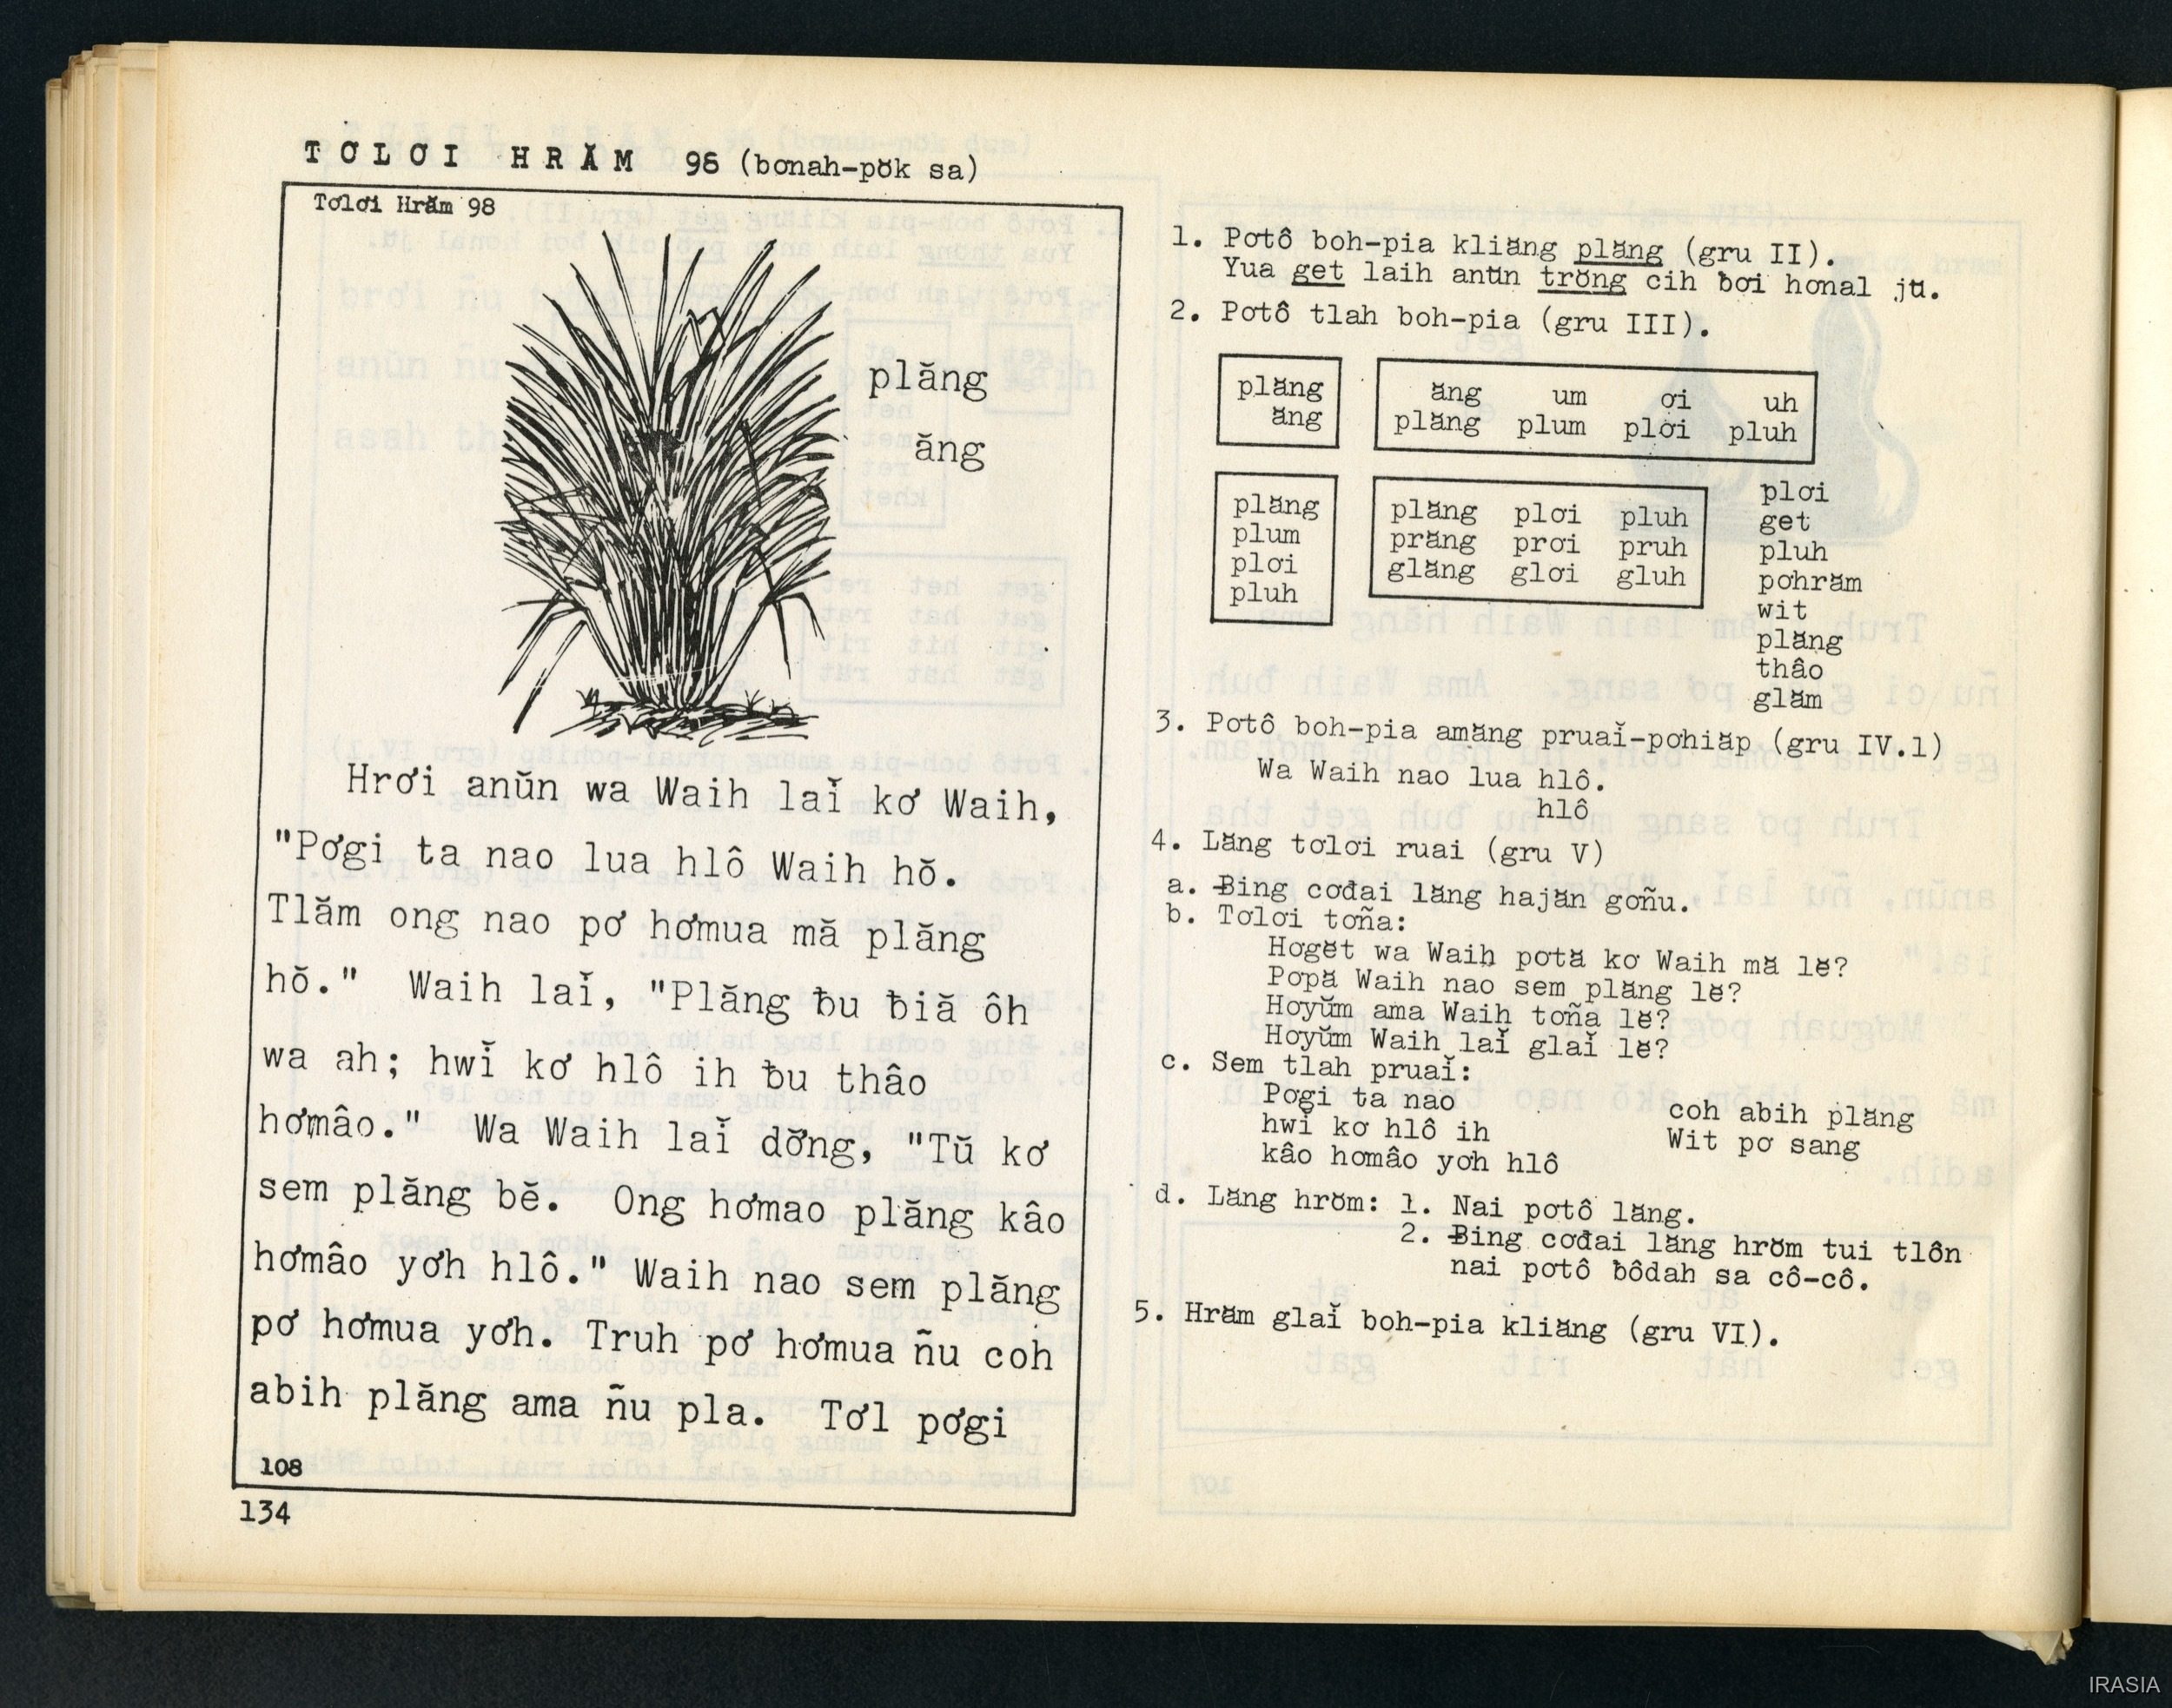 TƠLƠI HRĂM 98 (bơnah-pŏk sa)
Tơlơi Hrăm 98
plăng
ăng
Hrơi anŭn wa Waih laĭ kơ Waih,
"Pơgi ta nao lua hlô Waih hŏ.
Tlăm ong nao pơ hơmua mă plăng
hŏ."  Waih laĭ, "Plăng ƀu ƀiă ôh
wa ah; hwĭ kơ hlô ih ƀu thâo
hơmâo."  Wa Waih laĭ dơ̆ng, "Tŭ kơ
sem plăng bĕ.  Ong hơmao plăng kâo
hơmâo yơh hlô." Waih nao sem plăng
pơ hơmua yơh. Truh pơ hơmua ñu coh
abih plăng ama ñu pla.  Tơl pơgi
108
134
1. Pơtô boh-pia kliăng plăng (gru II).
Yua get laih anŭn trŏng cih ƀơi hơnal jŭ.
2. Pơtô tlah boh-pia (gru III).
plăng
ăng
ăng um ơi uh
plăng plum plơi pluh
plăng
plum
plơi
pluh
plăng plơi pluh
prăng prơi pruh
glăng glơi gluh
plơi
get
pluh
pơhrăm
wit
plăng
thâo
glăm
3. Pơtô boh-pia amăng pruaĭ-pơhiăp (gru IV.1)
Wa Waih nao lua hlô.
hlô
4. Lăng tơlơi ruai (gru V)
a. Ƀing cơđai lăng hajăn gơñu.
b. Tơlơi tơña:
Hơgĕt wa Waih pơtă kơ Waih mă lĕ?
Pơpă Waih nao sem plăng lĕ?
Hơyŭm ama Waih tơña lĕ?
Hơyŭm Waih laĭ glaĭ lĕ?
c. Sem tlah pruaĭ:
Pơgi ta nao
hwĭ kơ hlô ih
kâo hơmâo yơh hlô
coh abih plăng
Wit pơ sang
d. Lăng hrŏm: 1. Nai pơtô lăng.
2. Ƀing cơđai lăng hrŏm tui tlôn
nai pơtô ƀôdah sa cô-cô.
5. Hrăm glaĭ boh-pia kliăng (gru VI).
IRASIA